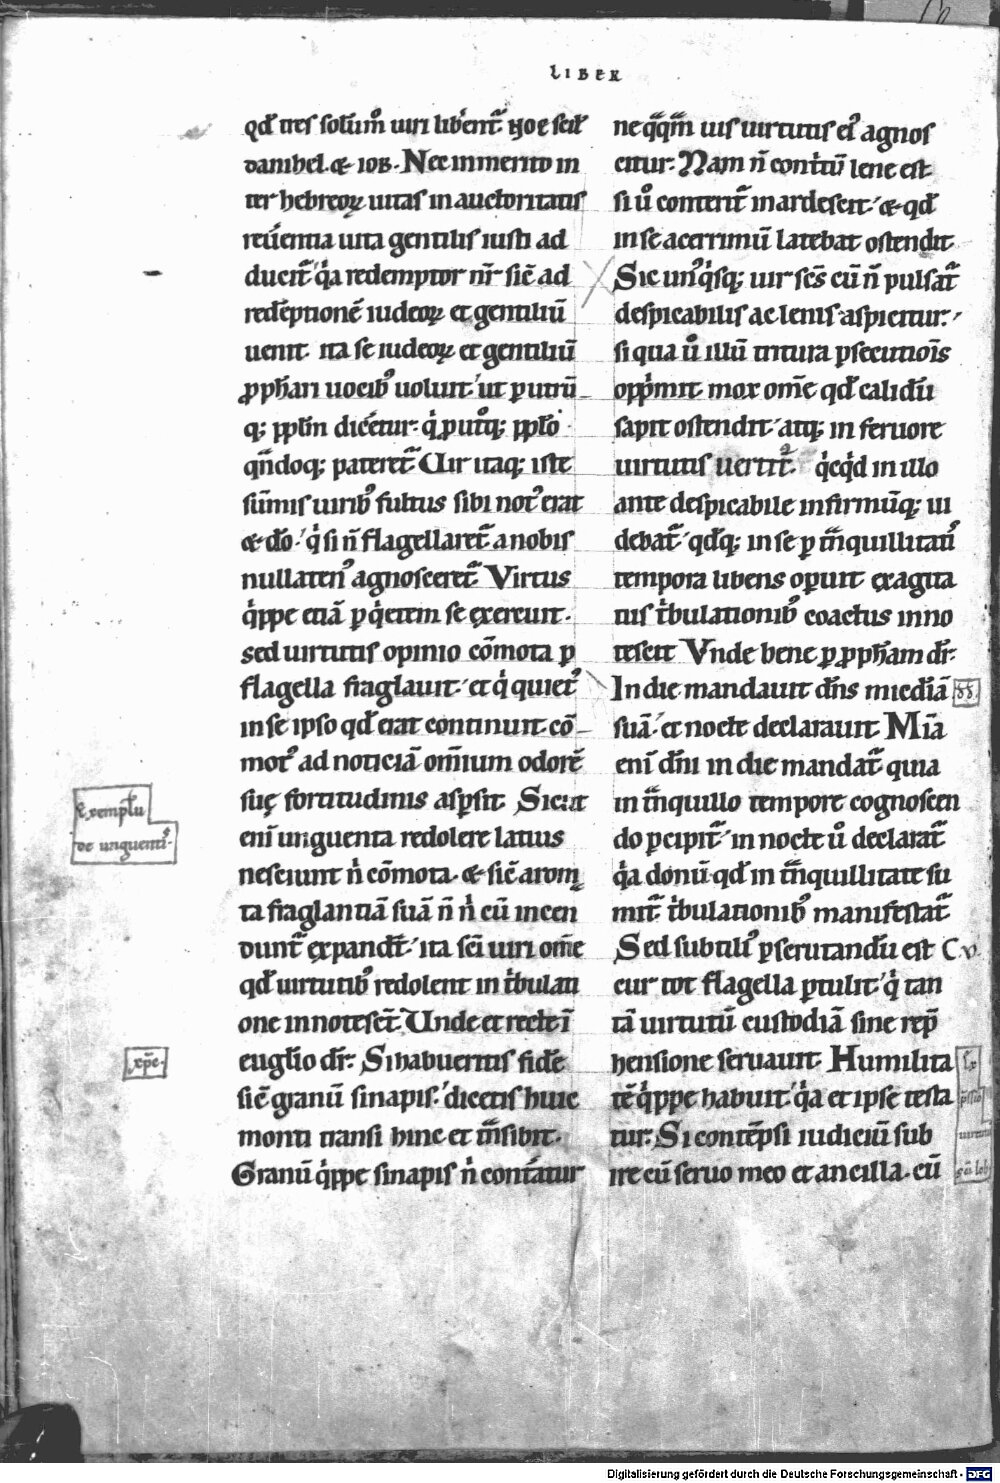 LIBER
qđ tres solūm̊ uiri liƀent᷑ Noe scił
danihel. & ioB. Nec inmerito in
ter hebreoꝝ uitas in auctoritatis
reu͛entia uita gentilis iusti ad
ducit᷑ qͥa redemptor nr̄ sic̄ ad
redēptionē iudeoꝝ et gentiliū
uenit. ita se iudeoꝝ et gentiliū
ꝓpħari uocibꝰ uoluit. ut ꝑ utrū
qꝫ ppłm dicet᷑ur qͥ ꝓ utroqꝫ ppło
qn̄doqꝫ pateret᷑ Uir itaqꝫ iste
sūmis uiribꝰ fultus sibi notꝰ erat
& do̅. qͥ si n̄ flagellaret᷑ a nobis
nullatenꝰ agnosceret᷑ Virtus
qͥppe etiā ꝑ qͥetem se exercuit.
sed uirtutis opinio cōmota ꝑ
flagella fraglauit. et qͥ quietꝰ
in se ipso qđ erat continuit. cō
motꝰ ad noticiā om̄ium odorē
suę fortitudinis asꝑsit. Sicut
enī unguenta redolere latius
nesciunt n̄ cōmota. & sic̄ arom
ta fraglantiā suā n̄ nͥ cū incen
dunt᷑ expandt̄. ita sc̄i uiri om̄e
qđ uirtutibꝰ redolent in tͥbulati
one innotesct̄. Unde et recte ī
euglio dr̄. Si habueritis fidē
sic̄ granū sinapis. dicetis huic
monti transi hinc et tᷓnsibit.
Granū qͥppe sinapis nͥ contᷓatur
neqͣqͣm uis uirtutis eiꝰ agnos
citur. Nam n̄ contͥtū lene est
si ů conterit᷑ inardescit. & qđ
in se acerrimū latebat ostendit
Sic unꝰqͥsqꝫ uir sc̄s cū n̄ pulsat᷑
despicabilis ac lenis aspicitur.
si qua ů illū tritura ꝑsecutiōis
oppͥmit. mox om̄e qđ calidū
sapit ostendit. atqꝫ in feruore
uirtutis uertit᷑. qͥcqͥd in illo
ante despicabile infirmūqꝫ ui
debat᷑. qđqꝫ in se ꝑ tᷓnquillitatū
tempora libens oꝑuit exagita
tus tͥbulationibꝰ coactus inno
tescit Vnde bene ꝑ ꝓpħam dr̄.
In die mandauit dn̄s miēdiā
suā. et nocte declarauit Mīā
enī dn̄i in die mandat᷑ quia
in tᷓnquillo tempore cognoscen
do ꝑcipit᷑ in nocte ů declarat᷑
qͥa donū qđ in tᷓnquillitate su
mit᷑ tͥbulationibꝰ manifestat᷑
Sed subtiliꝰ ꝑscrutandū est C. v.
cur tot flagella ꝑtulit. qͥ tan
tā uirtutū custodiā sine rep̄
hensione seruauit. Humilita
tē qͥppe habuit. qͥa et ipse testa
tur. Si contēpsi iudiciū sub
ire cū seruo meo et ancilla. cū
Exemplū
de unguenti
xp̄e.
Digitalisierung gefördert durch die Deutsche Forschungsgemeinschaft - DFG